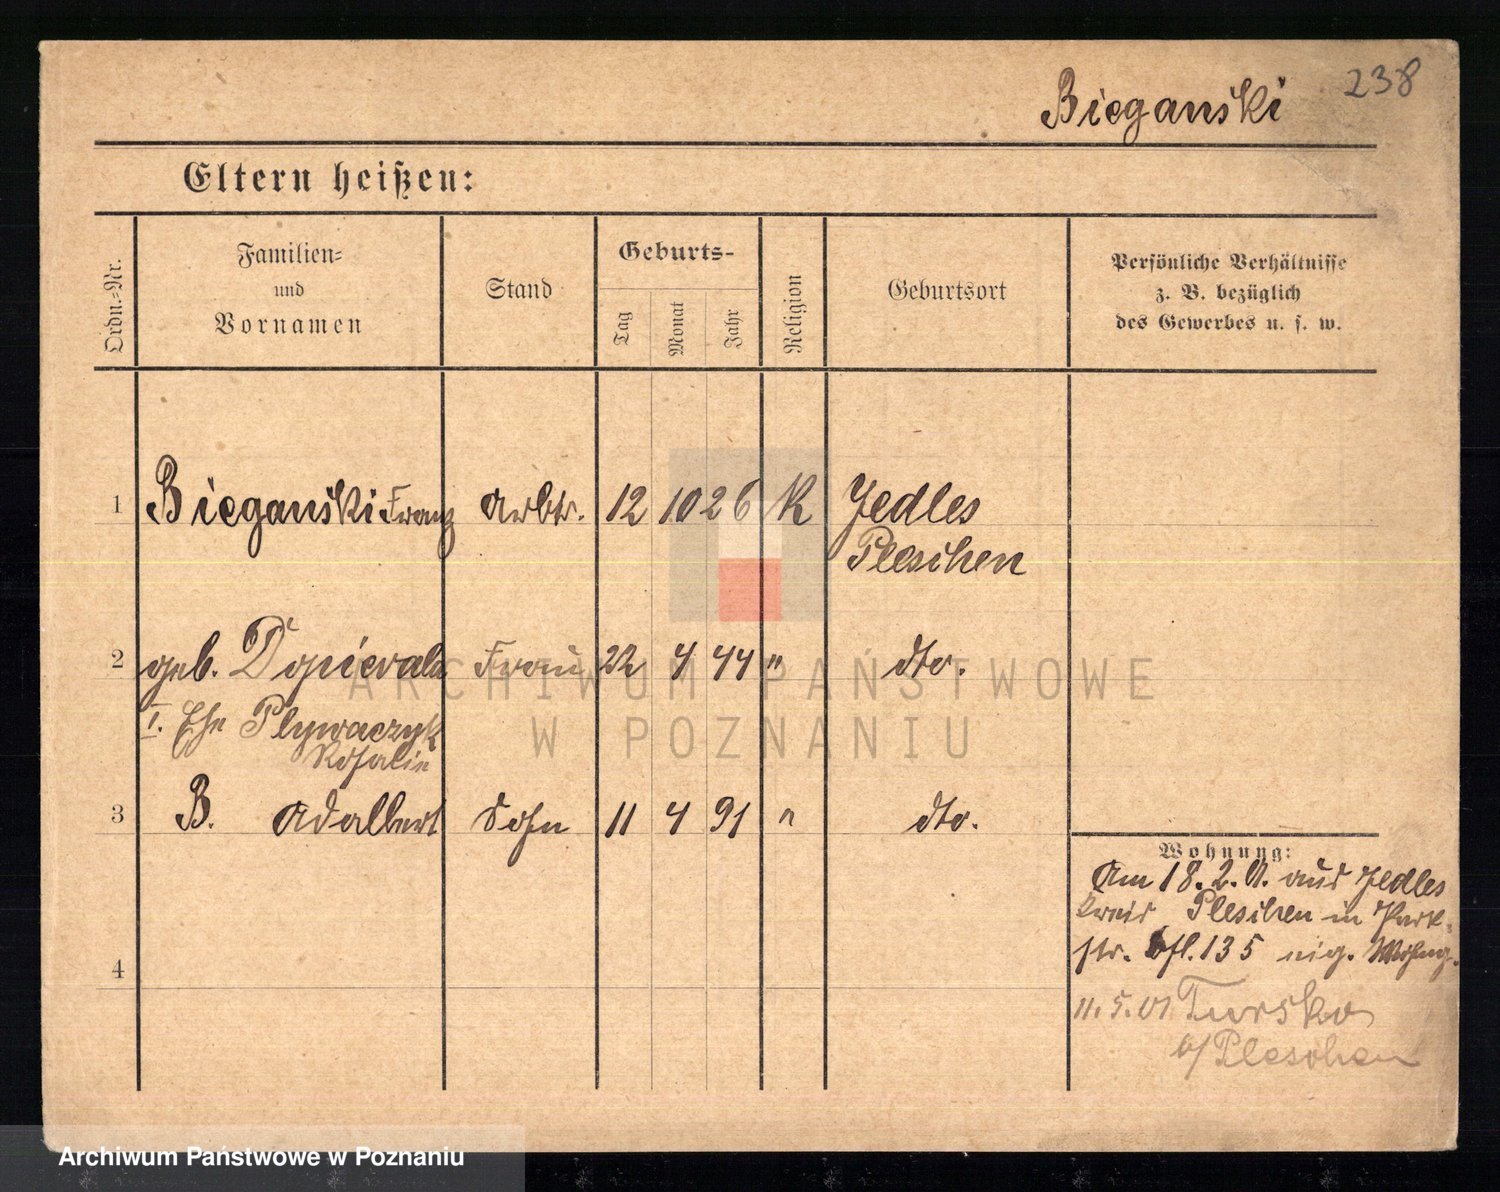 238
Bieganski
Eltern heißen:
Ordn.-Nr.
Familien-
und
Vornamen
Stand
Geburts-
Tag
Monat
Jahr
Religion
Geburtsort
Persönliche Verhältnisse
z. B. bezüglich
des Gewerbes u. s. w.
1 Bieganski Franz Arbtr. 12 10 26 K Jedles
Pleschen
2 geb. Dopierala Frau 22 4 44 " dto.
I. Ehe Plywaczyk
Rosalie
3 B. Adalbert Sohn 11 4 91 " dto.
4
Wohnung:
Am 18.2.01. aus Jedles
Kreis Pleschen in Park-
str. 135 eig. Wohng.
11.5.01 Tursko
b/ Pleschen
ARCHIWUM PAŃSTWOWE
W POZNANIU
Archiwum Państwowe w Poznaniu